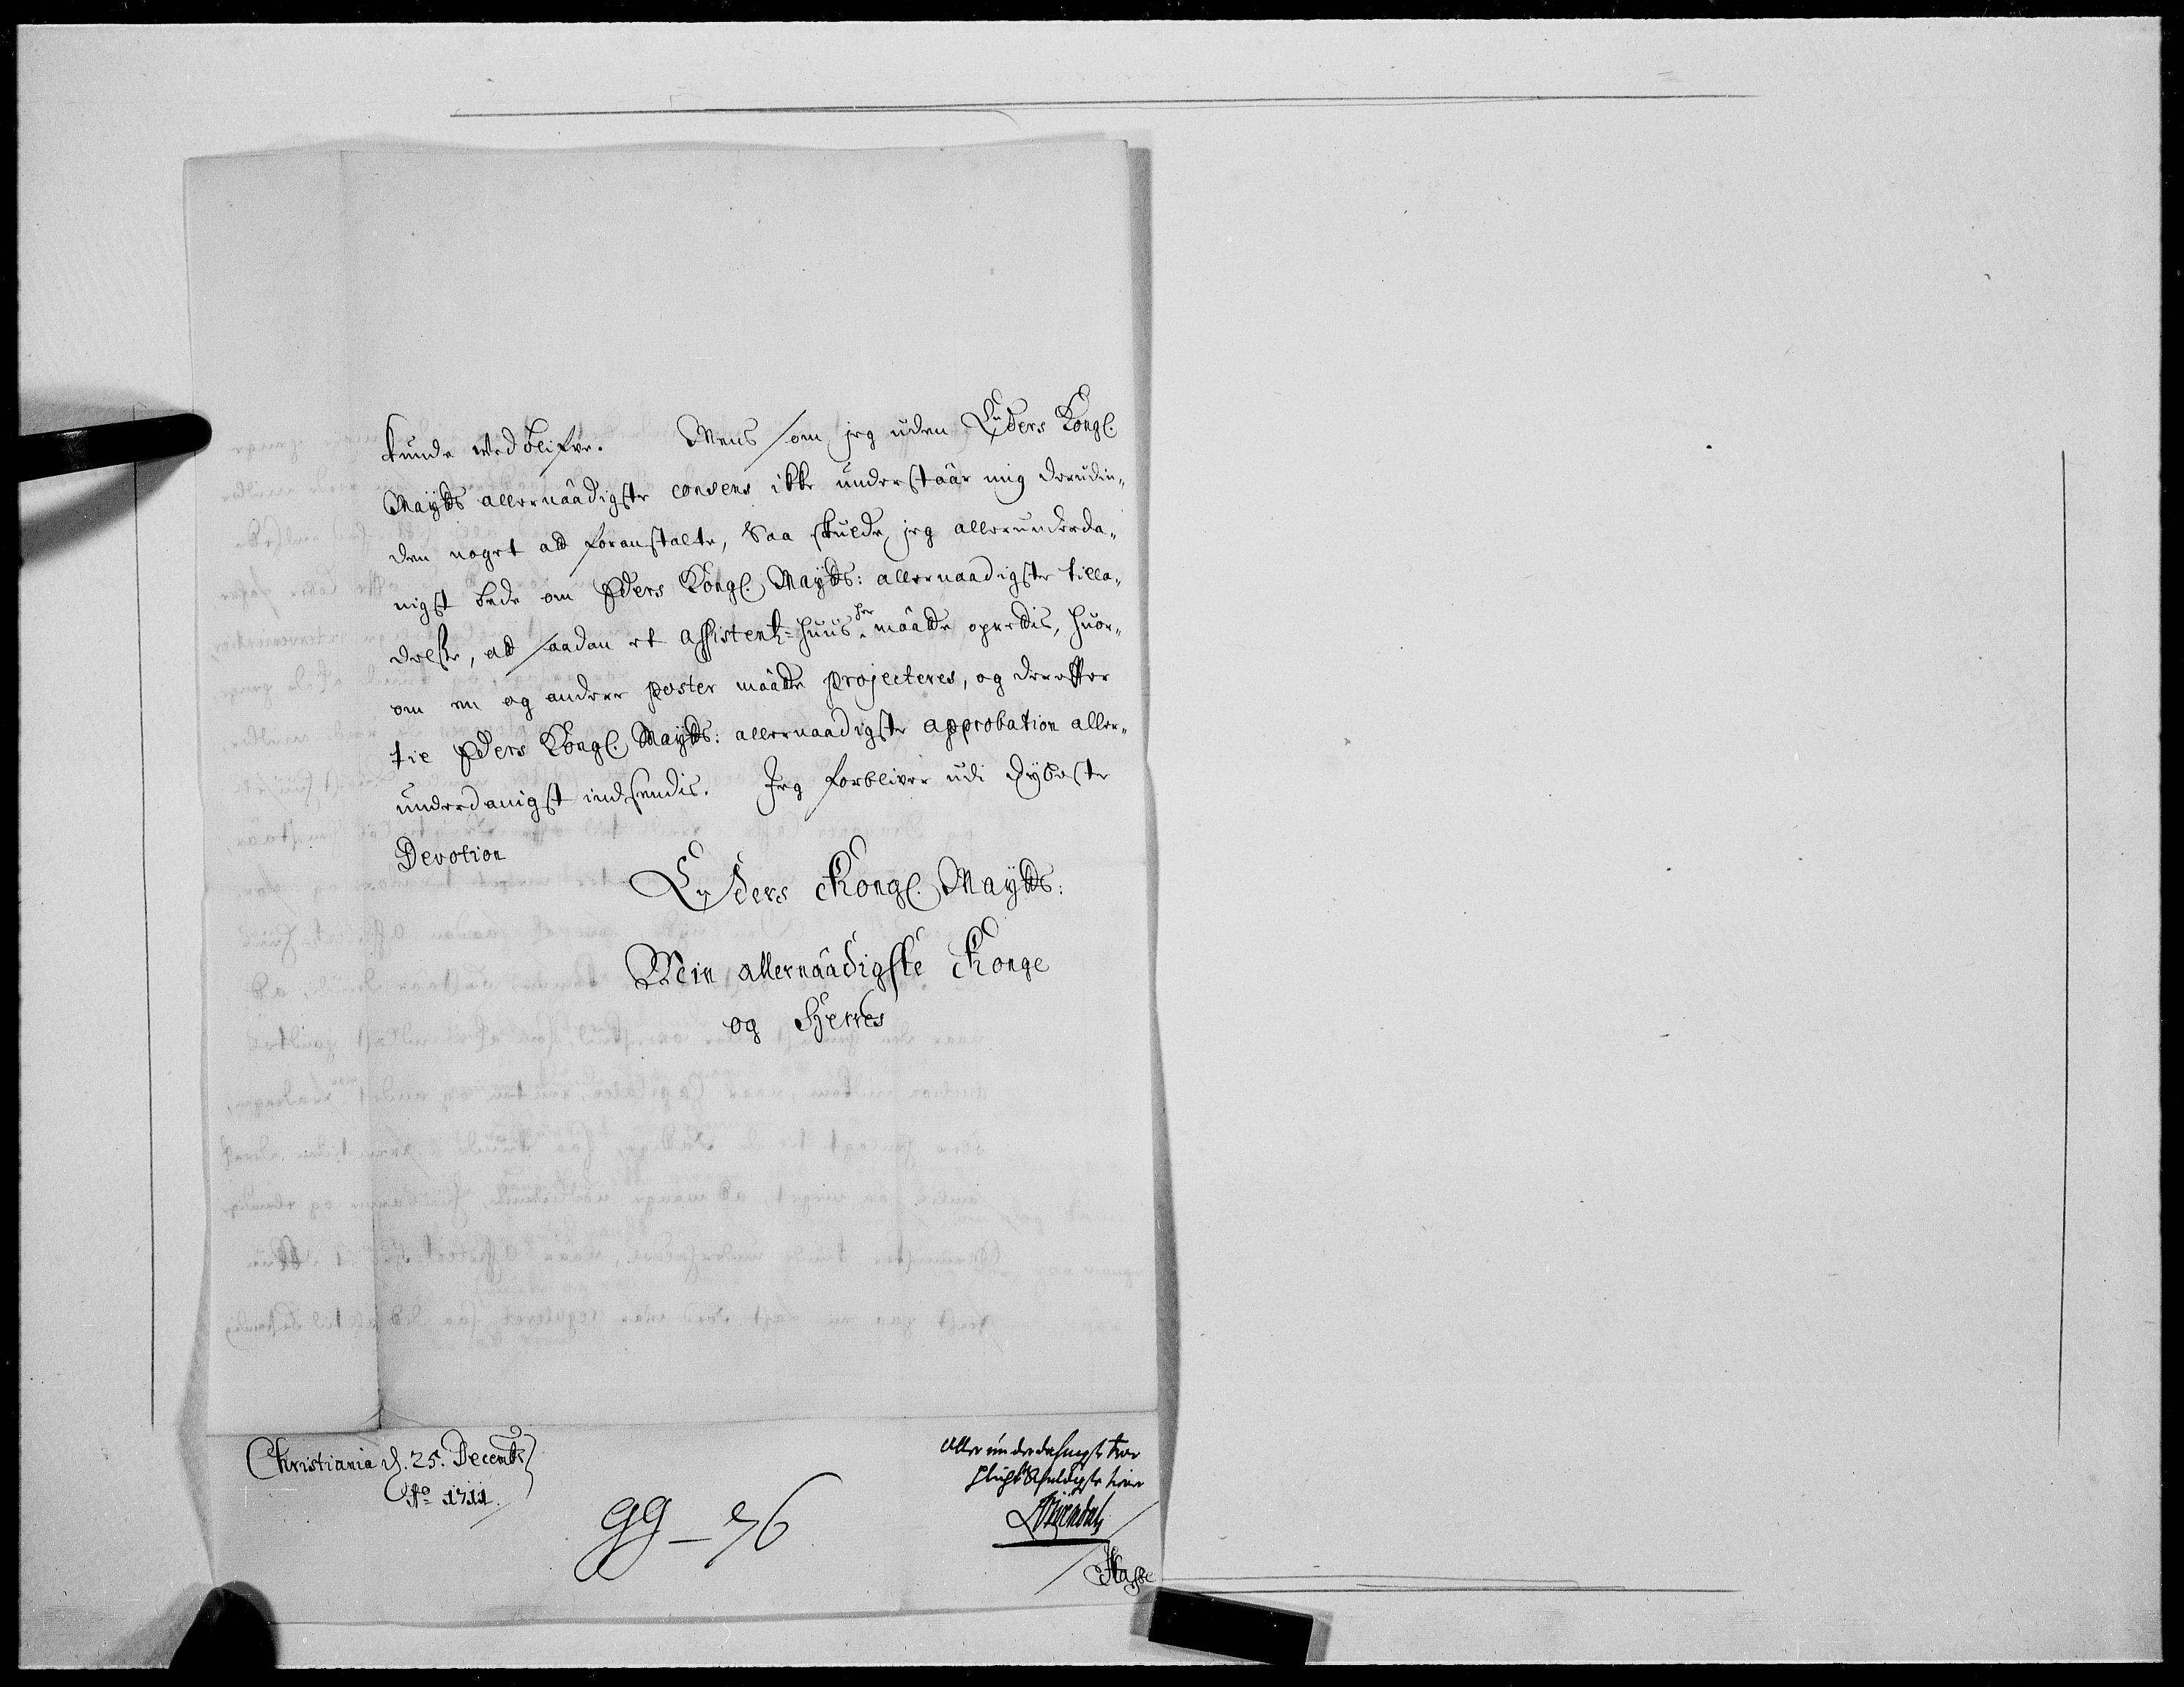 kunde wed blifve. Mens som jeg uden Eders Kongl.
Maytts allernaadigste consens icke understaar mig derudin„
den noget att foranstalte, Saa skulde jeg allerunderda„
nigst bede om Eders Kongl. Maytts: allernaadigste tilla„
delse, att saadan et Assistentz-Huus her maatte oprettis, huor„
om en og andere poster maatte projecteres, og derefter
til Eders Kongl. Maytts: allernaadigste approbation aller„
underdanigst indsendis. Jeg forbliver udi dybeste
Devotion
Eders Kongl. Maytts:
Mein allernaadigste Konge
og Herres
Christiania d. 25. Decembr
Ao 1711.
Allerunderdanigste troe
pligtskyldigste tiener
Hasse
99-76